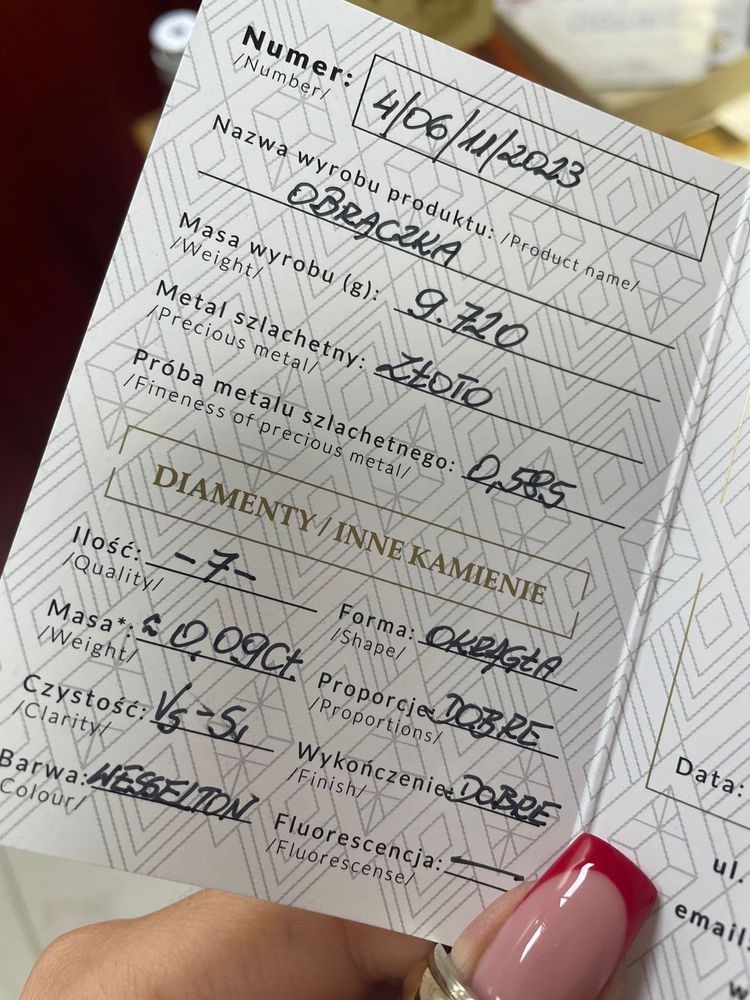 Numer: 4/06/11/2023
/Number/
Nazwa wyrobu produktu: /Product name/
OBRĄCZKA
Masa wyrobu (g): 9.720
/Weight/
Metal szlachetny: ZŁOTO
/Precious metal/
Próba metalu szlachetnego: 0,585
/Fineness of precious metal/
DIAMENTY / INNE KAMIENIE
Ilość: -7-
/Quality/
Forma: OKRĄGŁA
/Shape/
Masa*: ≈ 0,09Ct.
/Weight/
Proporcje: DOBRE
/Proportions/
Czystość: VS-SI
/Clarity/
Wykończenie: DOBRE
/Finish/
Barwa: WESSELTON
Colour/
Fluorescencja: —
/Fluorescense/
Data:
ul.
email:
w